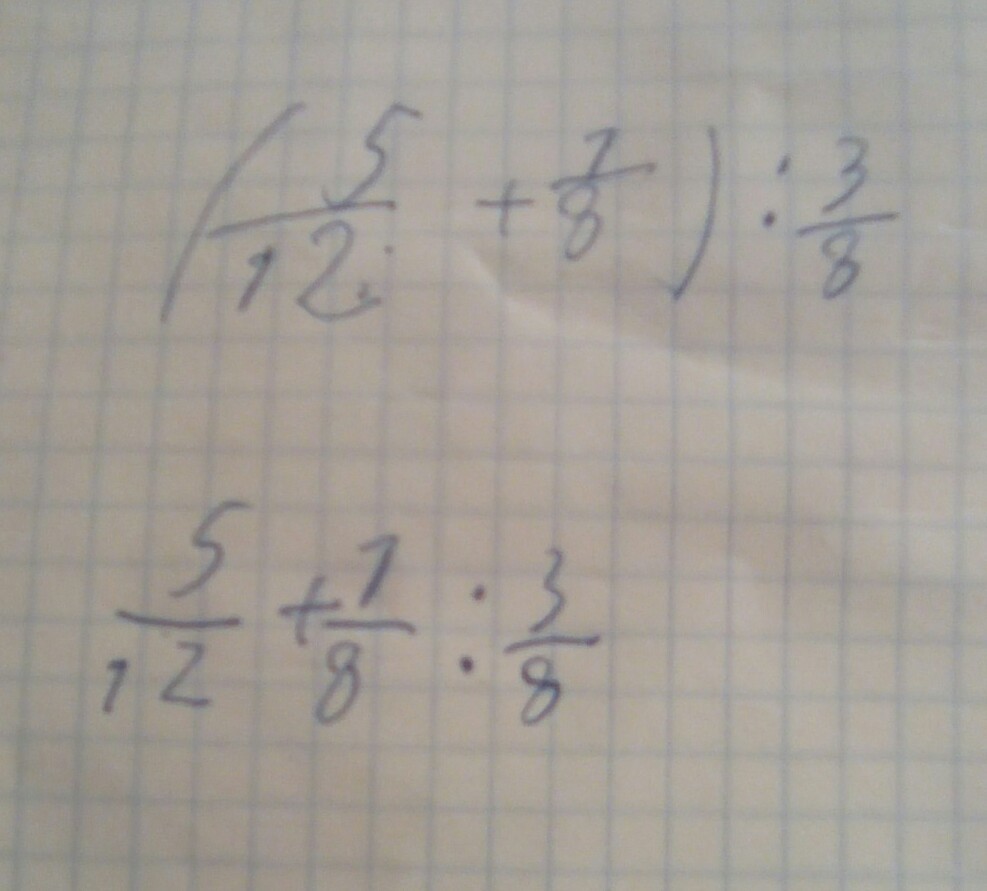 (5/12 + 7/8) : 3/8
5/12 + 7/8 : 3/8